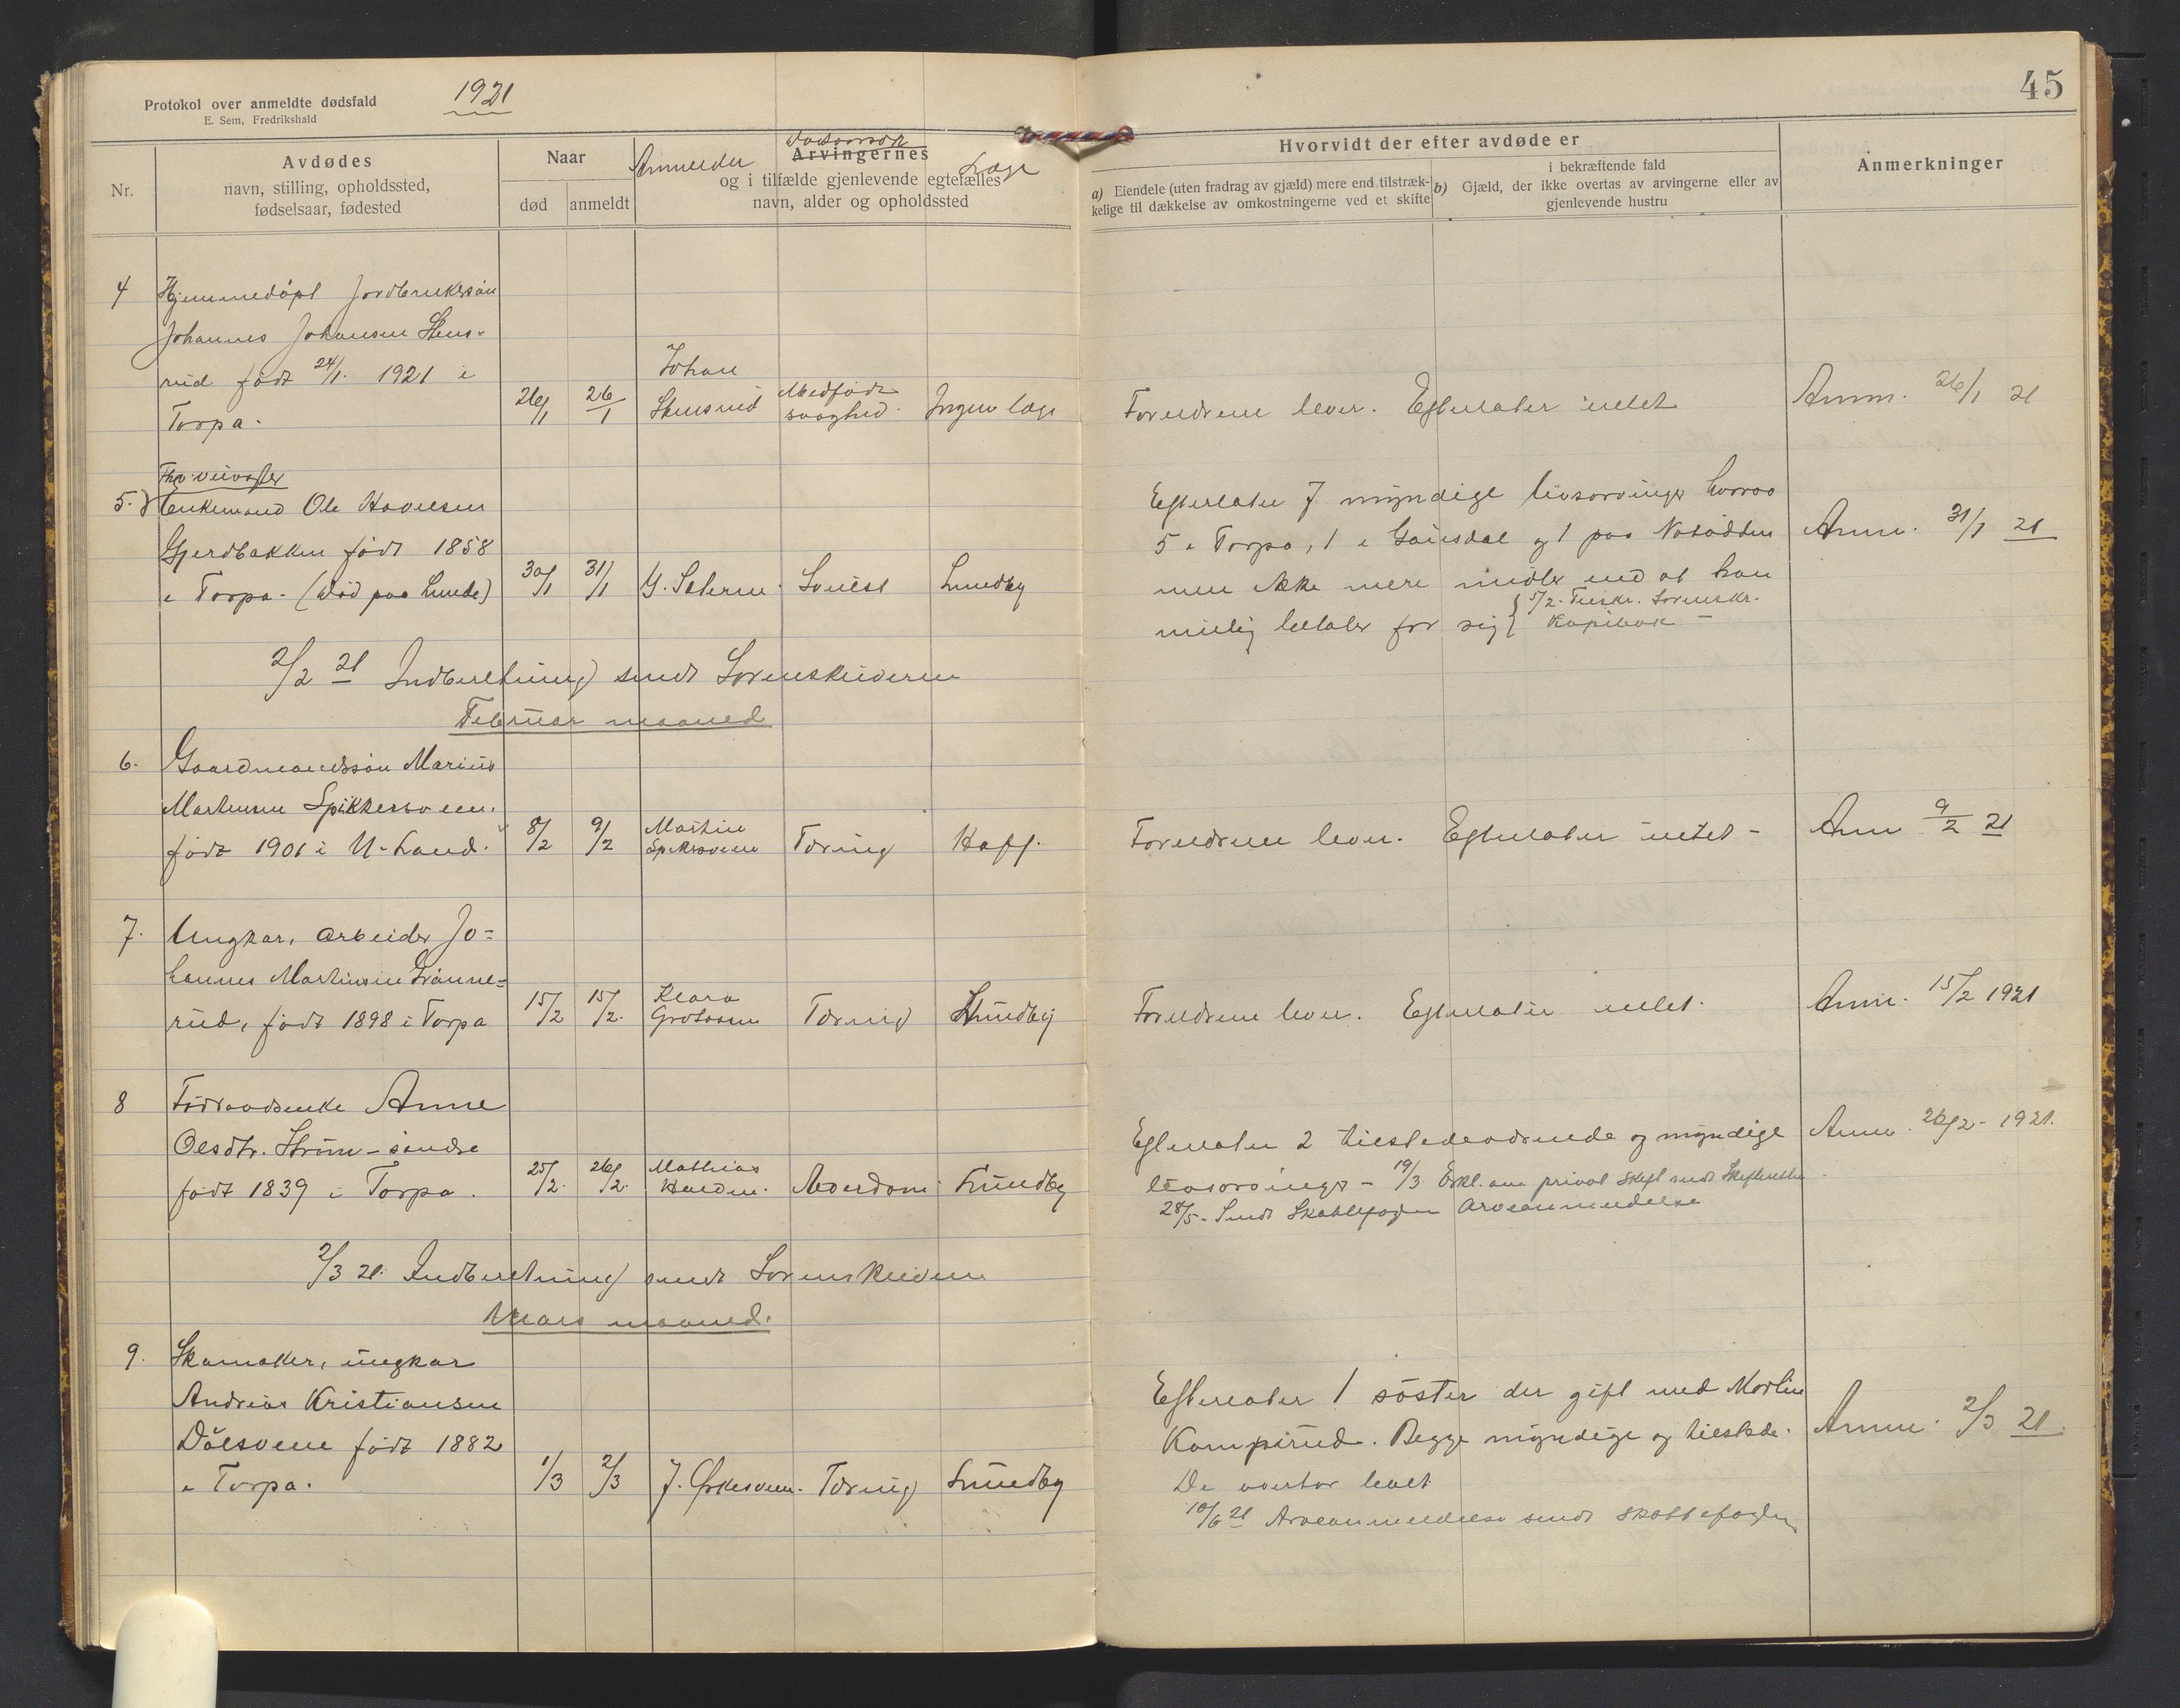 Protokol over anmeldte dødsfald
E. Sem, Fredrikshald
1921
45
Nr.
Avdødes
navn, stilling, opholdssted,
fødselsaar, fødested
Naar
død
anmeldt
Anmelder
Dødsaarsak
Læge
Arvingernes
og i tilfælde gjenlevende egtefælles
navn, alder og opholdssted
Hvorvidt der efter avdøde er
a) Eiendele (uten fradrag av gjæld) mere end tilstræk-
kelige til dækkelse av omkostningerne ved et skifte
i bekræftende fald
b) Gjæld, der ikke overtas av arvingerne eller av
gjenlevende hustru
Anmerkninger
4 Hjemmedöpt Jordbrukersön
Johannes Johansen Stens-
rud født 24/1. 1921 i
Torpa.
26/1 26/1 Johan Stensrud Medfödt svaghed. Ingen læge
Foreldrene lever. Efterlater intet Anm. 26/1 21
5. Fhv. veivogter
Enkemand Ole Hovelsen
Gjerdbakken født 1858
i Torpa. (död paa Lunde)
30/1 31/1 Lundby
Efterlater 7 myndige livsarvinger hvorav
5 i Torpa, 1 i Gausdal og 1 paa Notodden
men ikke mere midler end at han
nuelig betaler for sig
5/2. Tilskr. Sorenskr.
Kopibok -
Anm. 31/1 21
2/2 21 Indberetning sendt Sorenskriveren
Februar maaned
6. Gaardmandssön Marius
Martinsen Spikkersveen.
født 1901 i N. Land.
8/2 9/2 Martin Spikersveen Tæring Hoff.
Foreldrene lever. Efterlater intet - Anm 9/2 21
7. Ungkar, arbeider Jo=
hannes Martinsen Grönne=
rud, födt 1898 i Torpa
15/2 15/2. Klara Tæring Lundby
Foreldrene lever. Efterlater intet. Anm. 15/2 1921
8 Föderaadsenke Anne
Olesdtr. Ström-söndre
født 1839 i Torpa.
25/2. 26/2. Mathias Alderdom Lundby
Efterlater 2 tilstedeværende og myndige
livsarvinger - 19/3. Erkl. om privat skifte sendt Skifteretten
28/5. Sendt Skattefogden Arveanmeldelse
Anm. 26/2 - 1921.
2/3 21. Indberetning sendt Sorenskriveren
Mars maaned.
9. Skomaker, ungkar
Andreas Kristiansen
Dölsveen født 1882
i Torpa.
1/3 2/3 Tæring Lundby
Efterlater 1 söster der gift med Martin
Kompsrud. Begge myndige og tilstede.
De overtar boet
10/6 21 Arveanmeldelse sendt skattefogden
Anm. 2/3 21.